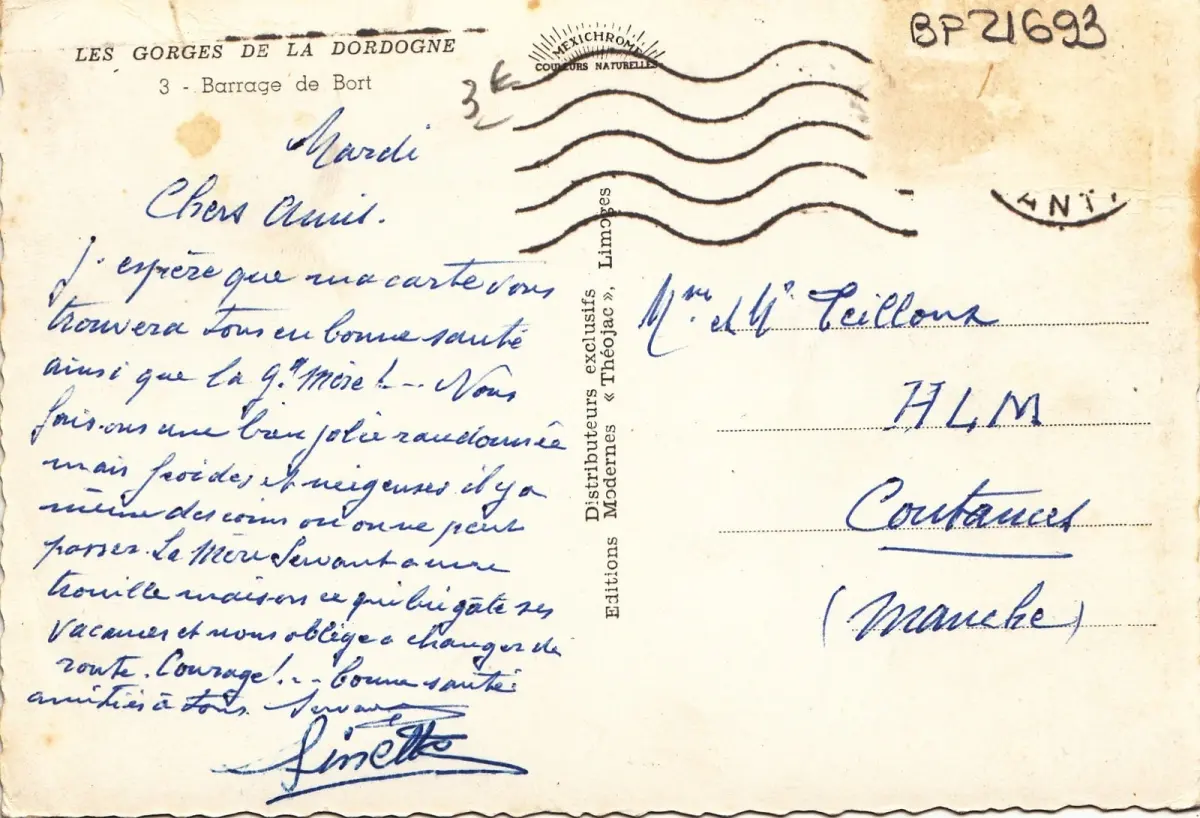 LES GORGES DE LA DORDOGNE
3 - Barrage de Bort
MEXICHROME
COULEURS NATURELLES
3€
BP 21693
ANT
Mardi
Chers Amis.
J. espère que ma carte vous
trouvera tous en bonne santé
ainsi que la Gd Mère! -- Nous
faisons une bien jolie randonnée
mais froides et neigeuses il y a
même des coins ou on ne peut
passer. La Mère Servant a une
trouille maison ce qui lui gâte ses
vacances et nous oblige a changer de
route. Courage! .-- bonne santé.
amitiés à tous.
Ginette
Distributeurs exclusifs
Editions Modernes « Théojac », Limoges
Mme et Mr Teilloux
HLM
Coutances
(Manche)